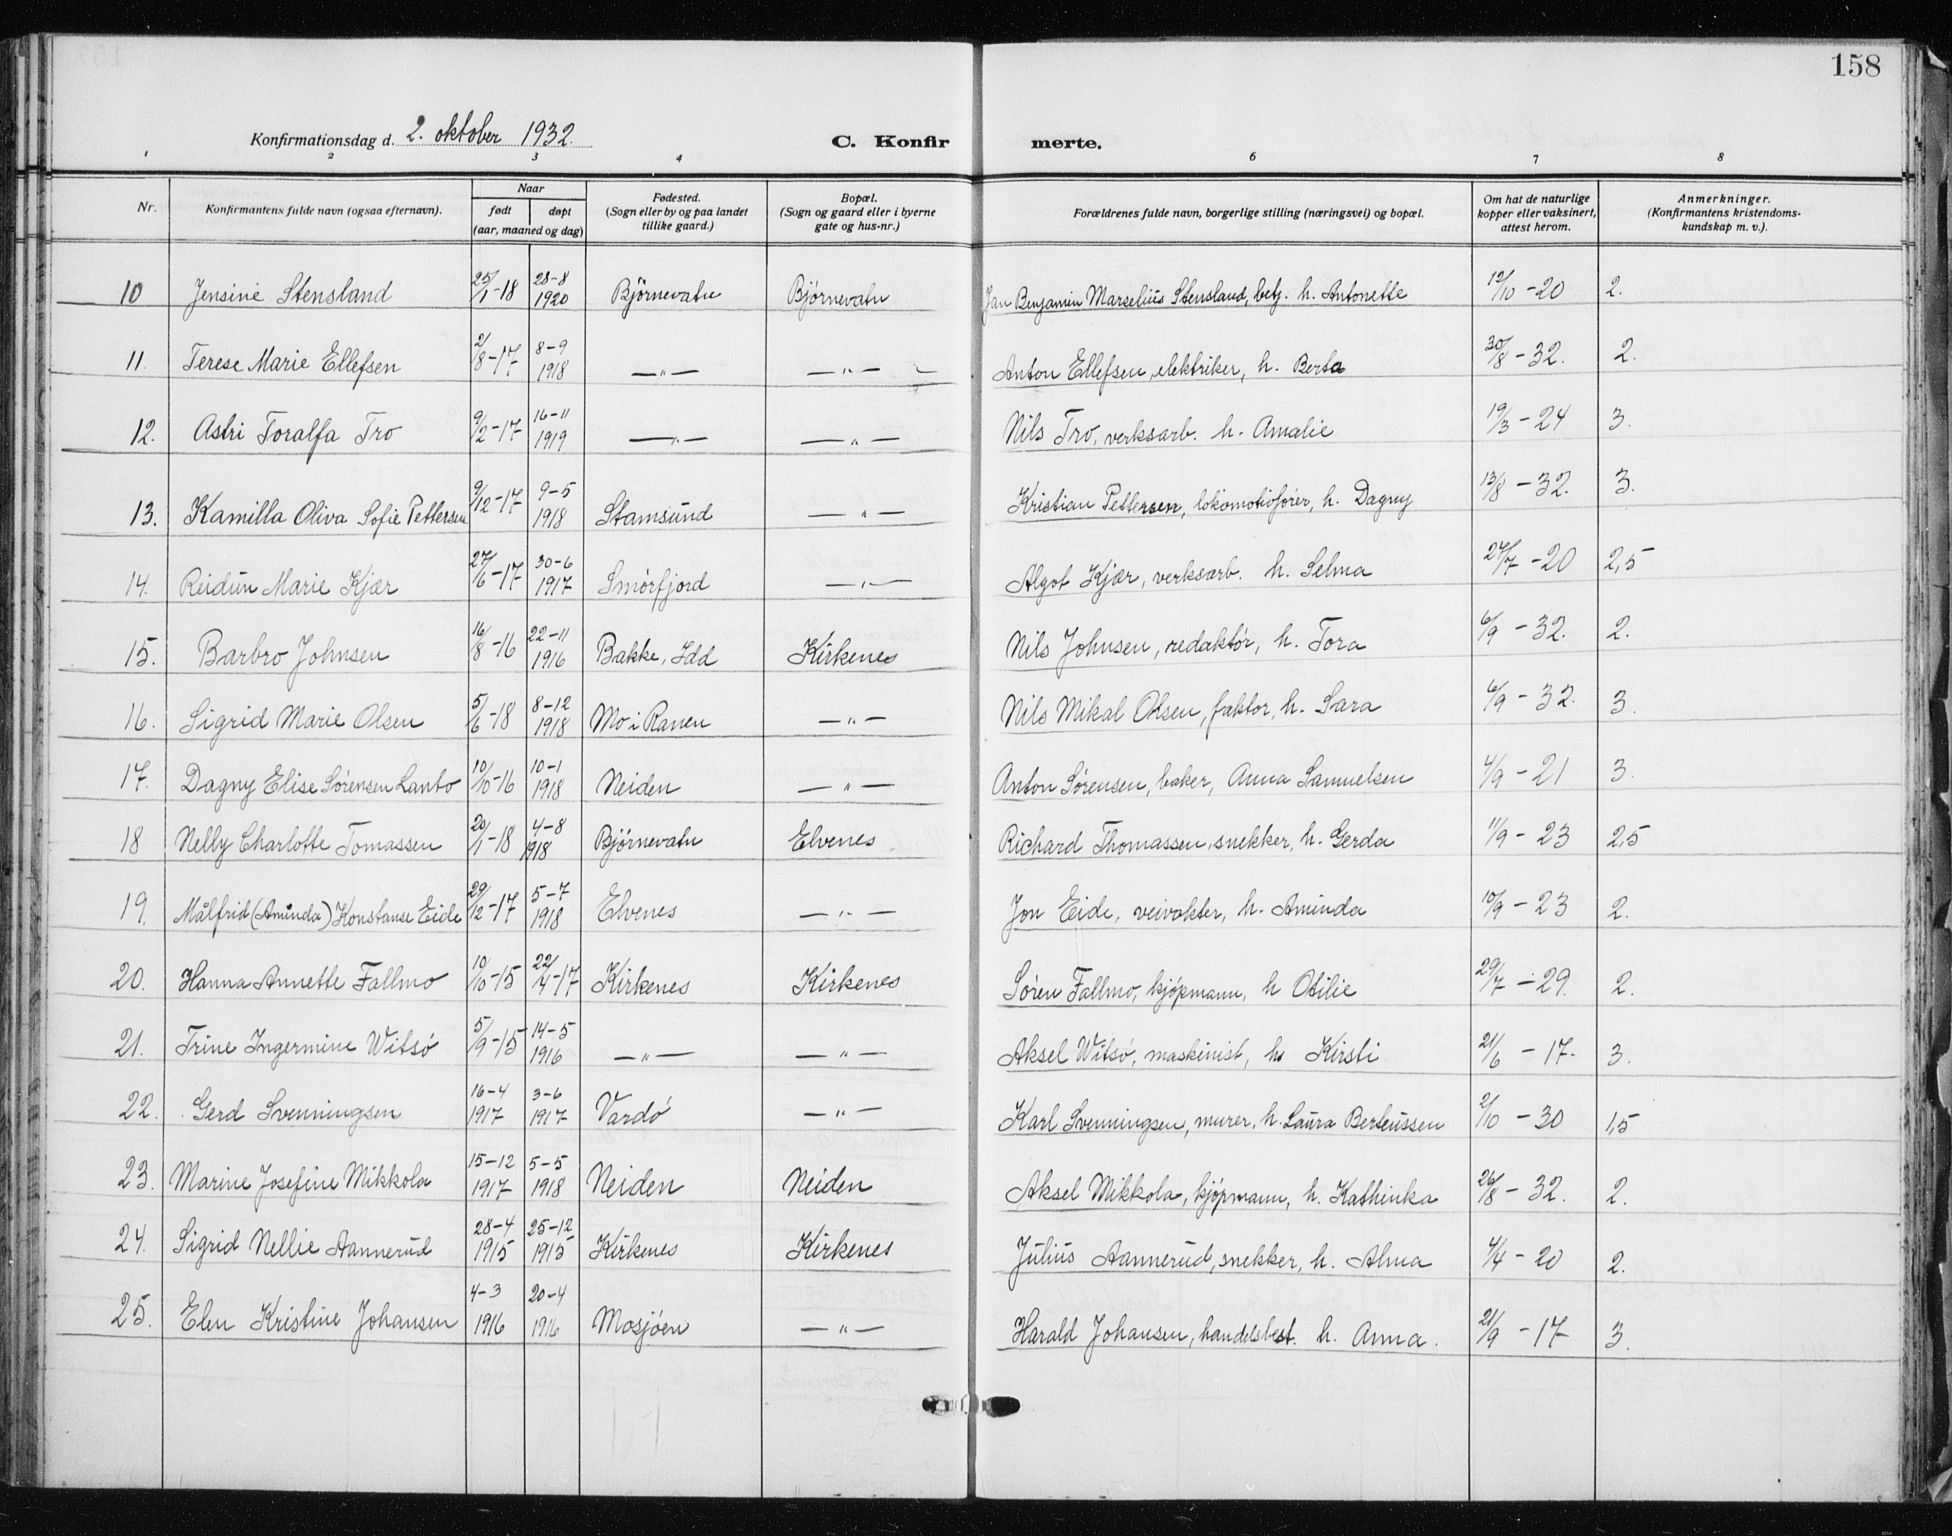 158
Konfirmationsdag d. 2. oktober 1932. C. Konfir merte.
1 2 3 4 6 7 8
Nr. Konfirmantens fulde navn (ogsaa efternavn). Naar født døpt (aar, maaned og dag) Fødested. (Sogn eller by og paa landet tillike gaard.) Bopæl. (Sogn og gaard eller i byerne gate og hus-nr.) Forældrenes fulde navn, borgerlige stilling (næringsvei) og bopæl. Om hat de naturlige kopper eller vaksinert, attest herom. Anmerkninger. (Konfirmantens kristendoms-kundskap m. v.).
10 Jensine Stensland 25/1-18 28-8 1920 Bjørnevatn Bjørnevatn Jan Benjamin Marselius Stensland, betj. h. Antonette 12/10-20 2.
11. Terese Marie Ellefsen 2/8-17 8-9 1918 —„— —„— Anton Ellefsen, elektriker, h. Berta 30/8-32. 2.
12. Astri Toralfa Tro 9/2-17 16-11 1919 —„— —„— Nils Tro, verksarb. h. Amalie 19/3-24 3.
13. Kamilla Oliva Sofie Pettersen 9/12-17 9-5 1918 Stamsund —„— Kristian Pettersen, lokomotivfører, h. Dagny 13/8-32. 3.
14. Reidun Marie Kjær 27/6-17 30-6 1917 Smørfjord —„— Algot Kjær, verksarb. h. Selma 27/7-20 2,5
15. Barbro Johnsen 16/8-16 22-11 1916 Bakke, Idd Kirkenes Nils Johnsen, redaktør, h. Tora 6/9-32. 2.
16. Sigrid Marie Olsen 5/6-18 8-12 1918 Mo i Ranen —„— Nils Mikal Olsen, faktor, h. Sara 6/9-32. 3.
17. Dagny Elise Sørensen Lanto 10/10-16 10-1 1918 Neiden —„— Anton Sørensen, baker, Anna Samuelsen 4/9-21 3.
18 Nelly Charlotte Tomassen 20/1-18 4-8 1918 Bjørnevatn Elvenes Richard Thomassen, snekker, h. Gerda 11/9-23 2,5
19. Målfrid (Aminda) Konstanse Eide 29/12-17 5-7 1918 Elvenes —„— Jon Eide, veivokter, h. Aminda 10/9-23 2.
20. Hanna Annette Fallmo 10/10-15 22/4-17 Kirkenes Kirkenes Søren Fallmo, kjøpmann, h Otilie 29/7-29. 2.
21. Trine Ingermine Witsø 5/9-15 14-5 1916 —„— —„— Aksel Witsø, maskinist, h. Kirsti 21/6-17- 3.
22. Gerd Svenningsen 16-4 1917 3-6 1917 Vardø —„— Karl Svenningsen, murer, h. Laura Berteussen 2/10-30 1,5
23. Marine Josefine Mikkola 15-12 1917 5-5 1918 Neiden Neiden Aksel Mikkola, kjøpmann, h. Kathinka 26/8-32. 2.
24. Sigrid Nellie Aannerud 28-4 1915 25-12 1915 Kirkenes Kirkenes Julius Aannerud, snekker, h. Alma 4/4-20 2.
25. Elen Kristine Johansen 4-3 1916 20-4 1916 Mosjøen —„— Harald Johansen, handelsbest. h. Anna. 21/9-17 3.